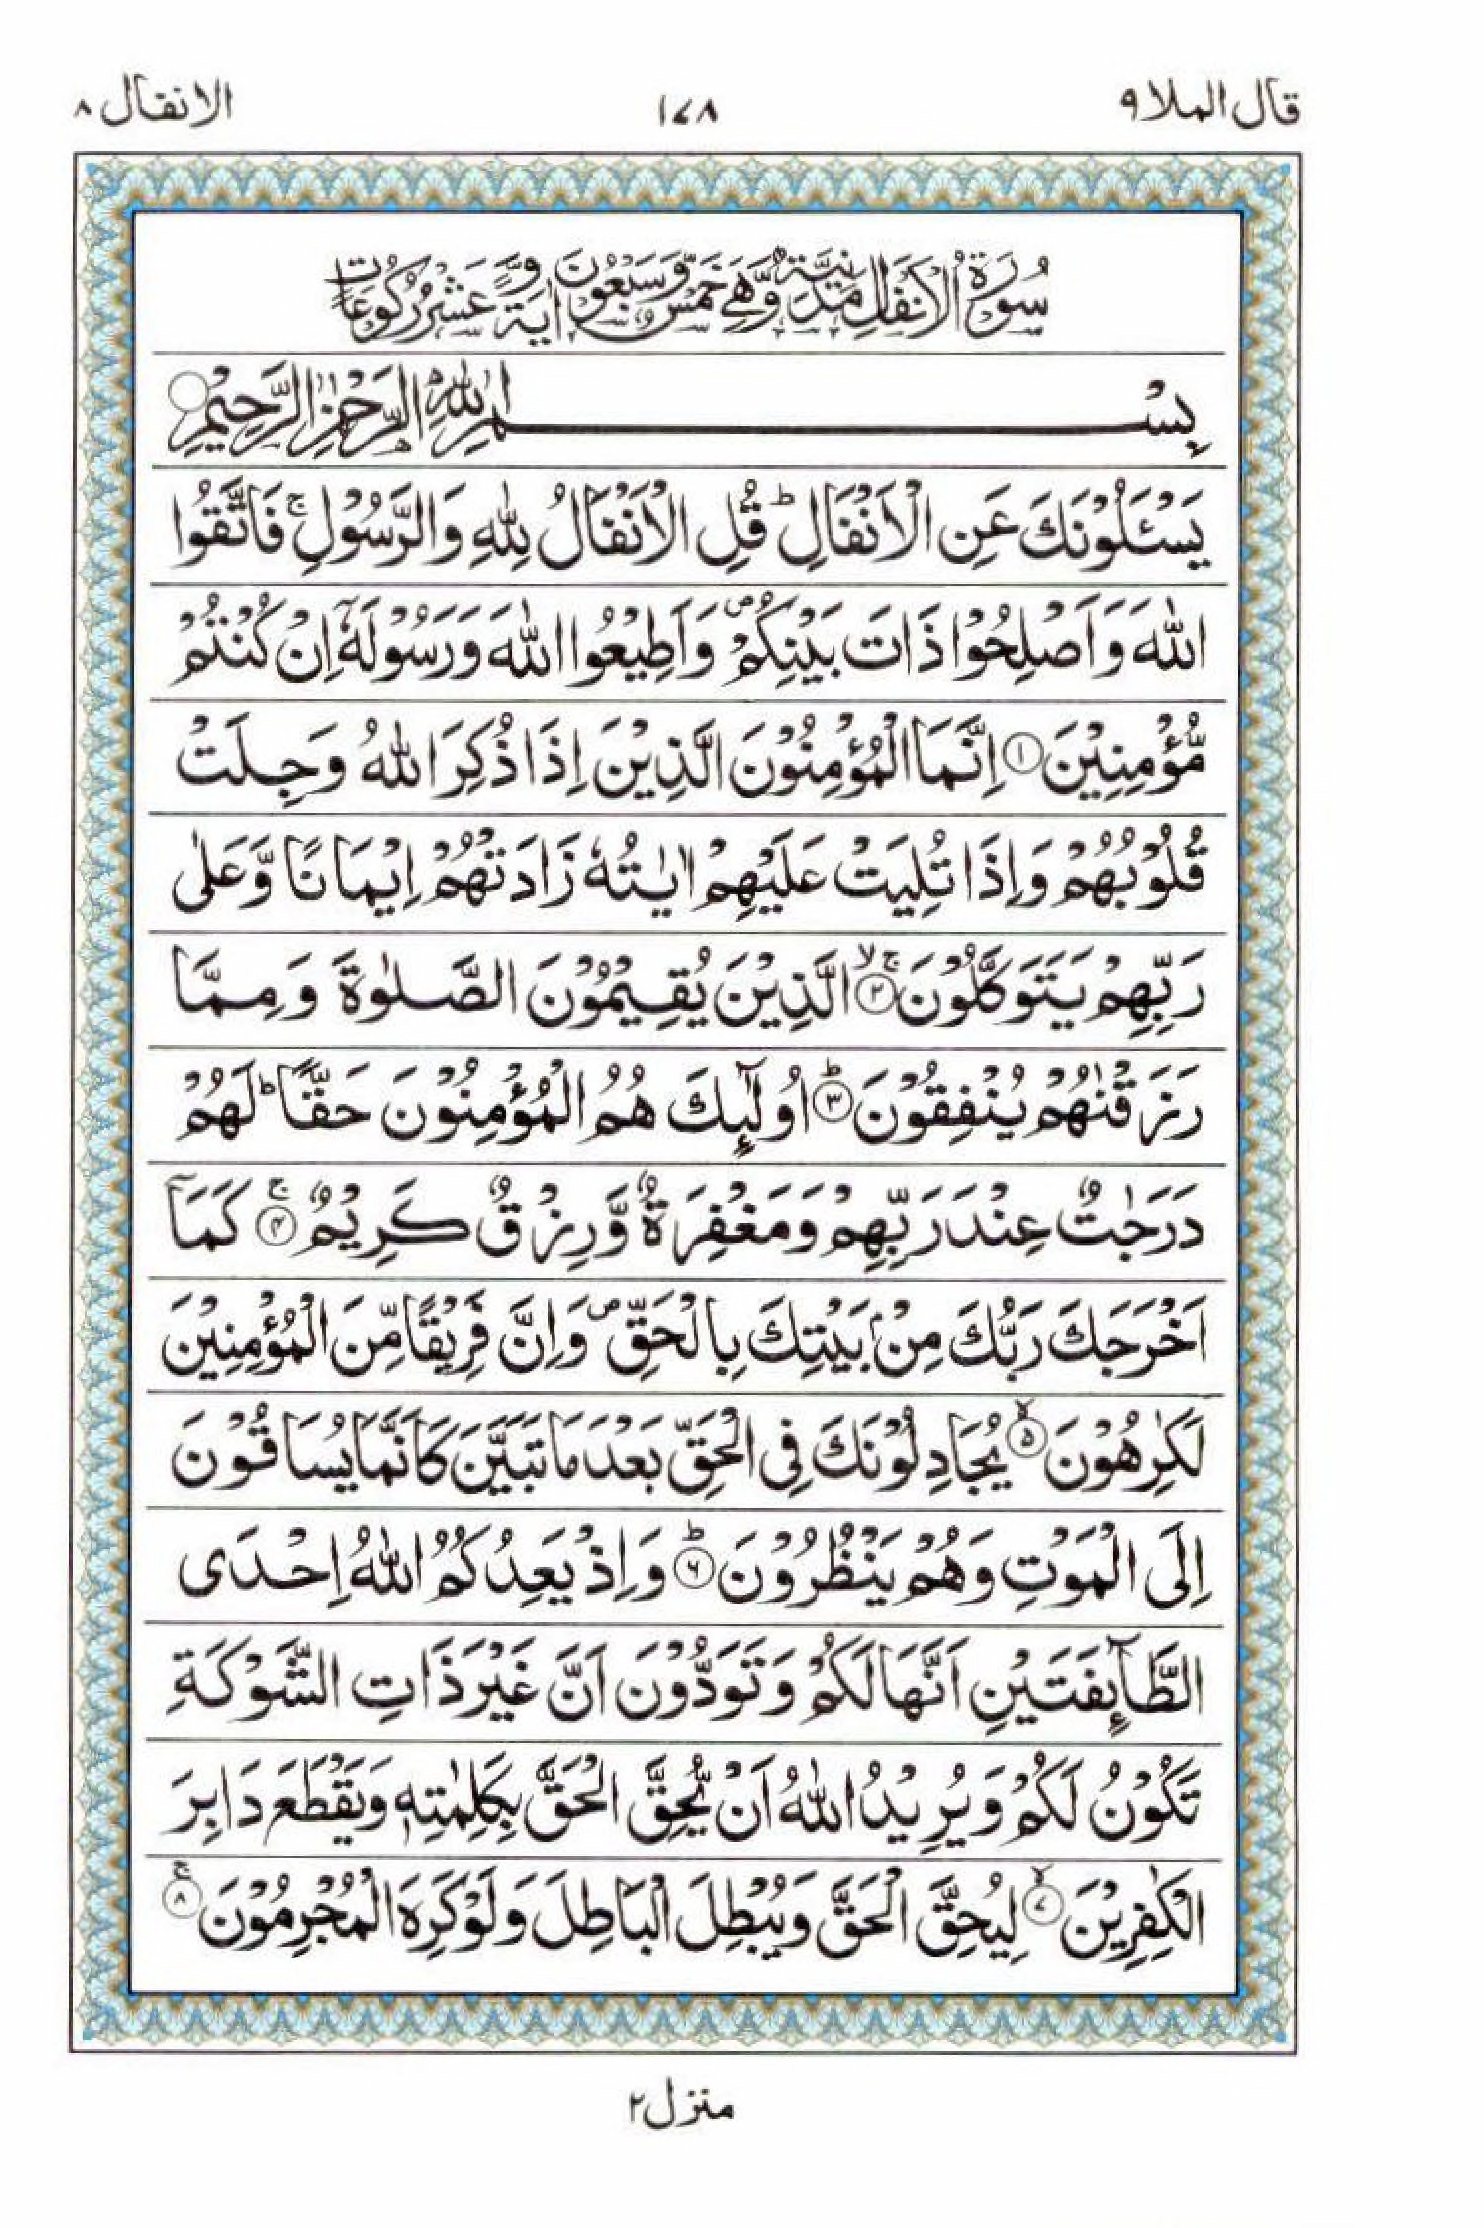 قال الملا ٩
١٧٨
الانفال ٨
سُوْرَةُ الْاَنْفَالِ مَدَنِيَّةٌ وَّهِيَ خَمْسٌ وَّسَبْعُوْنَ اٰيَةً وَّعَشْرُ رُكُوْعَاتٍ
بِسْمِ اللّٰهِ الرَّحْمٰنِ الرَّحِيْمِ
يَسْـَٔلُوْنَكَ عَنِ الْاَنْفَالِ ؕ قُلِ الْاَنْفَالُ لِلّٰهِ وَالرَّسُوْلِ ۚ فَاتَّقُوا
اللّٰهَ وَاَصْلِحُوْا ذَاتَ بَيْنِكُمْ ۪ وَاَطِيْعُوا اللّٰهَ وَرَسُوْلَهٗۤ اِنْ كُنْتُمْ
مُّؤْمِنِيْنَ ۝١ اِنَّمَا الْمُؤْمِنُوْنَ الَّذِيْنَ اِذَا ذُكِرَ اللّٰهُ وَجِلَتْ
قُلُوْبُهُمْ وَاِذَا تُلِيَتْ عَلَيْهِمْ اٰيٰتُهٗ زَادَتْهُمْ اِيْمَانًا وَّعَلٰى
رَبِّهِمْ يَتَوَكَّلُوْنَ ۚۖ ۝٢ الَّذِيْنَ يُقِيْمُوْنَ الصَّلٰوةَ وَمِمَّا
رَزَقْنٰهُمْ يُنْفِقُوْنَ ؕ ۝٣ اُولٰٓئِكَ هُمُ الْمُؤْمِنُوْنَ حَقًّا ؕ لَهُمْ
دَرَجٰتٌ عِنْدَ رَبِّهِمْ وَمَغْفِرَةٌ وَّرِزْقٌ كَرِيْمٌ ۚ ۝٤ كَمَاۤ
اَخْرَجَكَ رَبُّكَ مِنْۢ بَيْتِكَ بِالْحَقِّ ۪ وَاِنَّ فَرِيْقًا مِّنَ الْمُؤْمِنِيْنَ
لَكٰرِهُوْنَ ۙ ۝٥ يُجَادِلُوْنَكَ فِى الْحَقِّ بَعْدَ مَا تَبَيَّنَ كَاَنَّمَا يُسَاقُوْنَ
اِلَى الْمَوْتِ وَهُمْ يَنْظُرُوْنَ ؕ ۝٦ وَاِذْ يَعِدُكُمُ اللّٰهُ اِحْدَى
الطَّآئِفَتَيْنِ اَنَّهَا لَكُمْ وَتَوَدُّوْنَ اَنَّ غَيْرَ ذَاتِ الشَّوْكَةِ
تَكُوْنُ لَكُمْ وَيُرِيْدُ اللّٰهُ اَنْ يُّحِقَّ الْحَقَّ بِكَلِمٰتِهٖ وَيَقْطَعَ دَابِرَ
الْكٰفِرِيْنَ ۙ ۝٧ لِيُحِقَّ الْحَقَّ وَيُبْطِلَ الْبَاطِلَ وَلَوْ كَرِهَ الْمُجْرِمُوْنَ ۚ ۝٨
منزل ٢